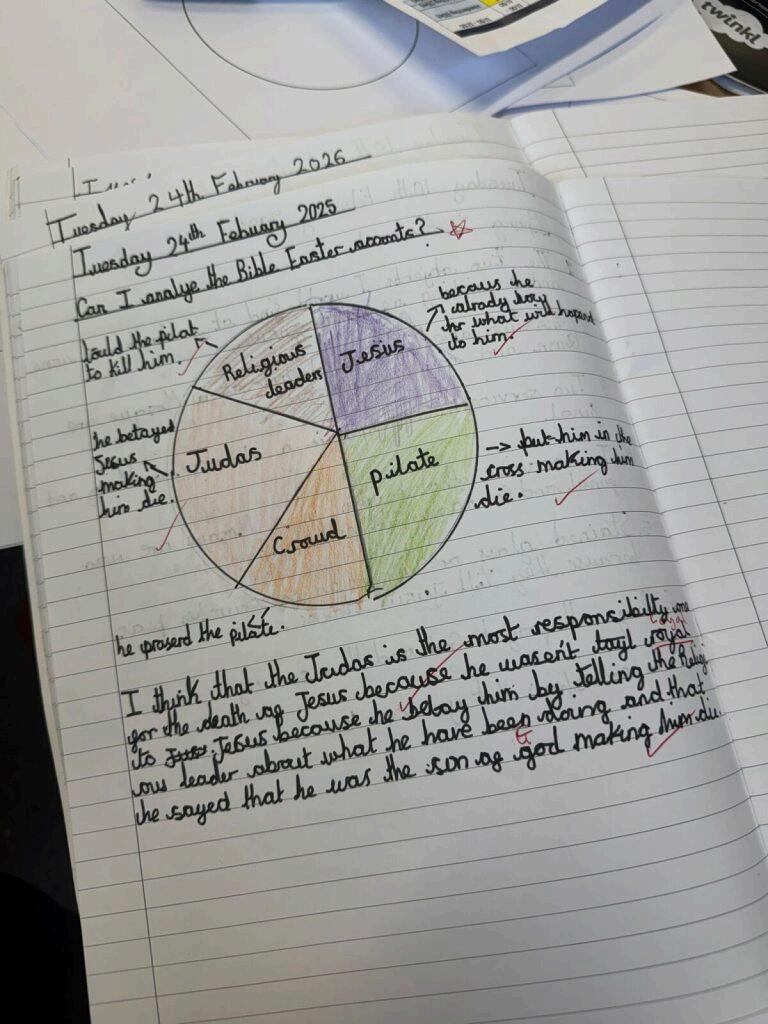 twinkl
Tuesday 24th February 2026
Tuesday 24th Febuary 2025
Can I analye the Bible Easter accounts?
becaus he
alrady
what will
to him.
the pilat
to kill him.
Religious
leaders
Jesus
he betayed
Jesus
making
him die.
Judas
pilate
→ put him in the
cross making him
die.
Crowd
he the pilate.
I think that the Judas is the most responsibilty one
for the death of Jesus because he wasen't royal
to Jesus because he betay him by telling the Relig
ous leader about what he have been doing and that
he sayed that he was the son of god making him die.